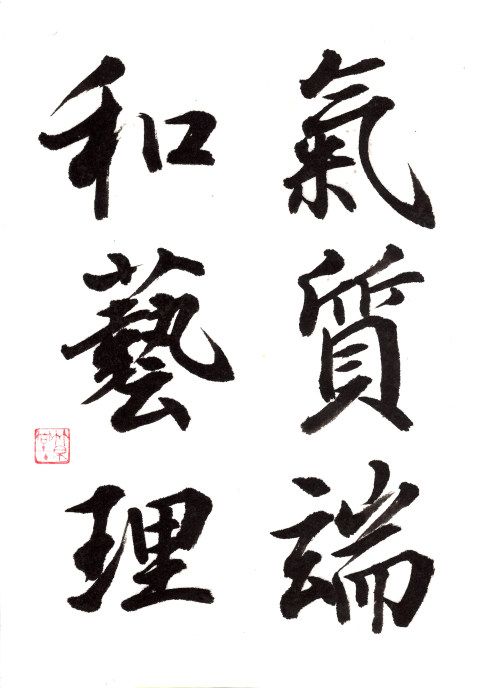 氣質端
和藝理